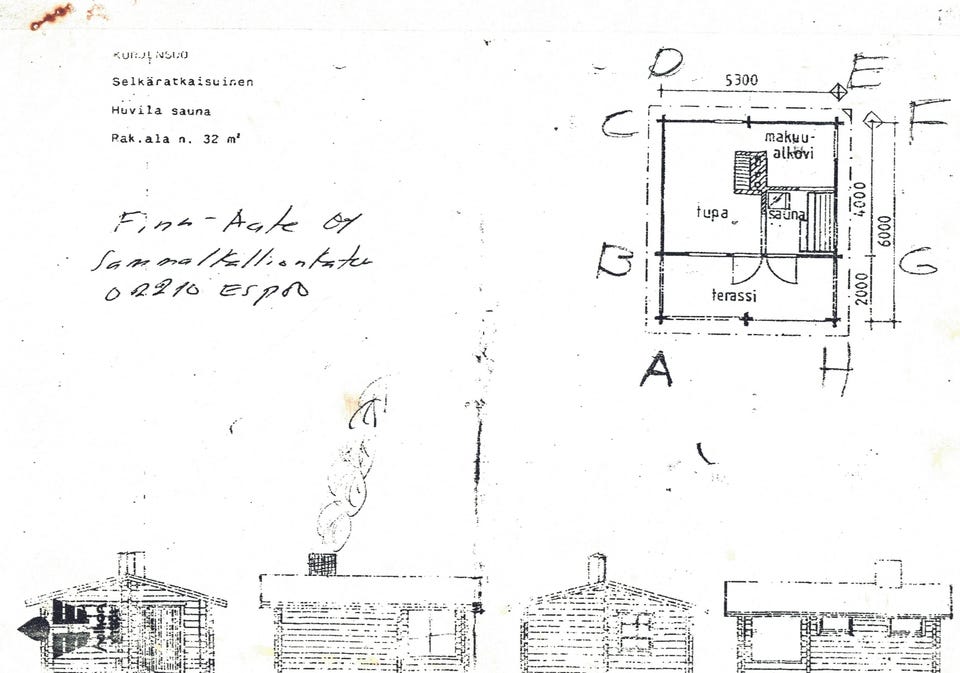 Selkäratkaisuinen
Huvila sauna
Rak.ala n. 32 m²
Finn-Aate Oy
Sammalkallionkatu
02210 ESPOO
D
E
5300
C
F
makuu-
alkovi
tupa
sauna
4000
6000
B
G
2000
terassi
A
H